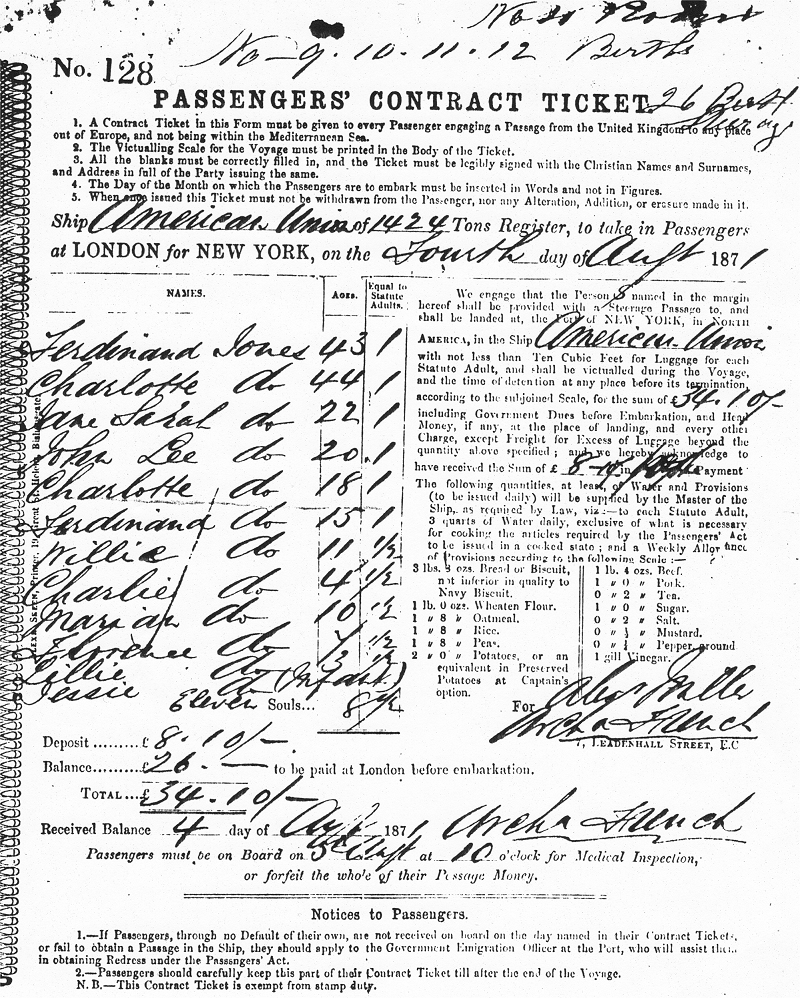 No 9. 10. 11. 12 Berths
No. 128
PASSENGERS' CONTRACT TICKET.
26 Berth
1. A Contract Ticket in this Form must be given to every Passenger engaging a Passage from the United Kingdom to any place
out of Europe, and not being within the Mediterranean Sea.
2. The Victualling Scale for the Voyage must be printed in the Body of the Ticket.
3. All the blanks must be correctly filled in, and the Ticket must be legibly signed with the Christian Names and Surnames,
and Address in full of the Party issuing the same.
4. The Day of the Month on which the Passengers are to embark must be inserted in Words and not in Figures.
5. When once issued this Ticket must not be withdrawn from the Passenger, nor any Alteration, Addition, or erasure made in it.
Ship American Union of 1424 Tons Register, to take in Passengers
at LONDON for NEW YORK, on the Fourth day of Augt 1871
NAMES. AGES. Equal to Statute Adults.
Ferdinand Jones 43 1
Charlotte do 44 1
Jane Sarah do 22 1
John Lee do 20 1
Charlotte do 18 1
Ferdinand do 15 1
Willie do 11 1/2
Charlie do 4 1/2
Marian do 10 1/2
Florence do 7 1/2
Lillie do 1/2
Jessie do (Infant)
Eleven Souls... 8 1/2
We engage that the Persons named in the margin
hereof shall be provided with a Steerage Passage to, and
shall be landed at, the Port of NEW YORK, in NORTH
AMERICA, in the Ship American Union
with not less than Ten Cubic Feet for Luggage for each
Statute Adult, and shall be victualled during the Voyage,
and the time of detention at any place before its termination,
according to the subjoined Scale, for the sum of £34.10/-
including Government Dues before Embarkation, and Head
Money, if any, at the place of landing, and every other
Charge, except Freight for Excess of Luggage beyond the
quantity above specified; and we hereby acknowledge to
have received the Sum of £ 8-10 in Payment
The following quantities, at least, of Water and Provisions
(to be issued daily) will be supplied by the Master of the
Ship, as required by Law, viz:—to each Statute Adult,
3 quarts of Water daily, exclusive of what is necessary
for cooking the articles required by the Passengers' Act
to be issued in a cooked state; and a Weekly Allowance
of Provisions according to the following Scale:—
3 lbs. 8 ozs. Bread or Biscuit,
not inferior in quality to
Navy Biscuit.
1 lb. 0 ozs. Wheaten Flour.
1 " 8 " Oatmeal.
1 " 8 " Rice.
1 " 8 " Peas.
2 " 0 " Potatoes, or an
equivalent in Preserved
Potatoes at Captain's
option.
1 lb. 4 ozs. Beef.
1 " 0 " Pork.
0 " 2 " Tea.
1 " 0 " Sugar.
0 " 2 " Salt.
0 " ½ " Mustard.
0 " ¼ " Pepper, ground
1 gill Vinegar.
For
Archd French
7, LEADENHALL STREET, E.C
Deposit ......... £ 8.10/-
Balance......... £ 26. — to be paid at London before embarkation.
TOTAL... £ 34.10/-
Received Balance 4 day of Augt 1871 Archd French
Passengers must be on Board on 5 Augt at 10 o'clock for Medical Inspection,
or forfeit the whole of their Passage Money.
Notices to Passengers.
1.—If Passengers, through no Default of their own, are not received on board on the day named in their Contract Tickets,
or fail to obtain a Passage in the Ship, they should apply to the Government Emigration Officer at the Port, who will assist them
in obtaining Redress under the Passengers' Act.
2.—Passengers should carefully keep this part of their Contract Ticket till after the end of the Voyage.
N.B.—This Contract Ticket is exempt from stamp duty.